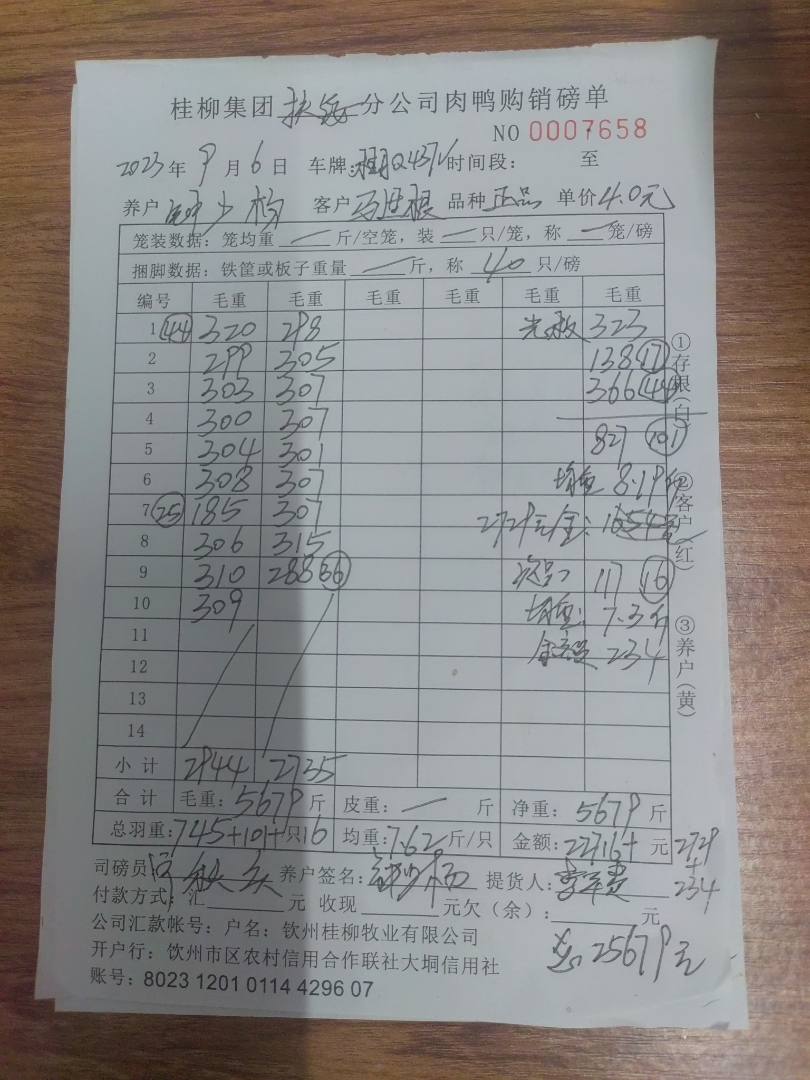 桂柳集团 分公司肉鸭购销磅单
NO 0007658
2023年 9月 6日 车牌: 时间段: 至
养户 客户 品种 正品 单价 4.0元
笼装数据: 笼均重 — 斤/空笼, 装 — 只/笼, 称 — 笼/磅
捆脚数据: 铁筐或板子重量 — 斤, 称 40 只/磅
编号 毛重 毛重 毛重 毛重 毛重 毛重
1 44 320 298 光板 323
2 299 305 138 17
3 303 307 366 44
4 300 307
5 304 301 827 101
6 308 307 均重 8.19斤
7 25 185 307 2729元
8 306 315
9 310 288 66 次品: 117 16
10 309 均重: 7.3斤
11 金额 234
12
13
14
小计 2944 2735
合计 毛重: 5679 斤 皮重: — 斤 净重: 5679 斤
总羽重: 745+101+只16 均重: 7.62 斤/只 金额: 22716+ 元 2729
+
234
司磅员: 养户签名: 提货人:
付款方式: 汇 元 收现 元欠(余): 元
公司汇款帐号: 户名: 钦州桂柳牧业有限公司
25679元
开户行: 钦州市区农村信用合作联社大垌信用社
账号: 8023 1201 0114 4296 07
①存根(白)
②客户(红)
③养户(黄)